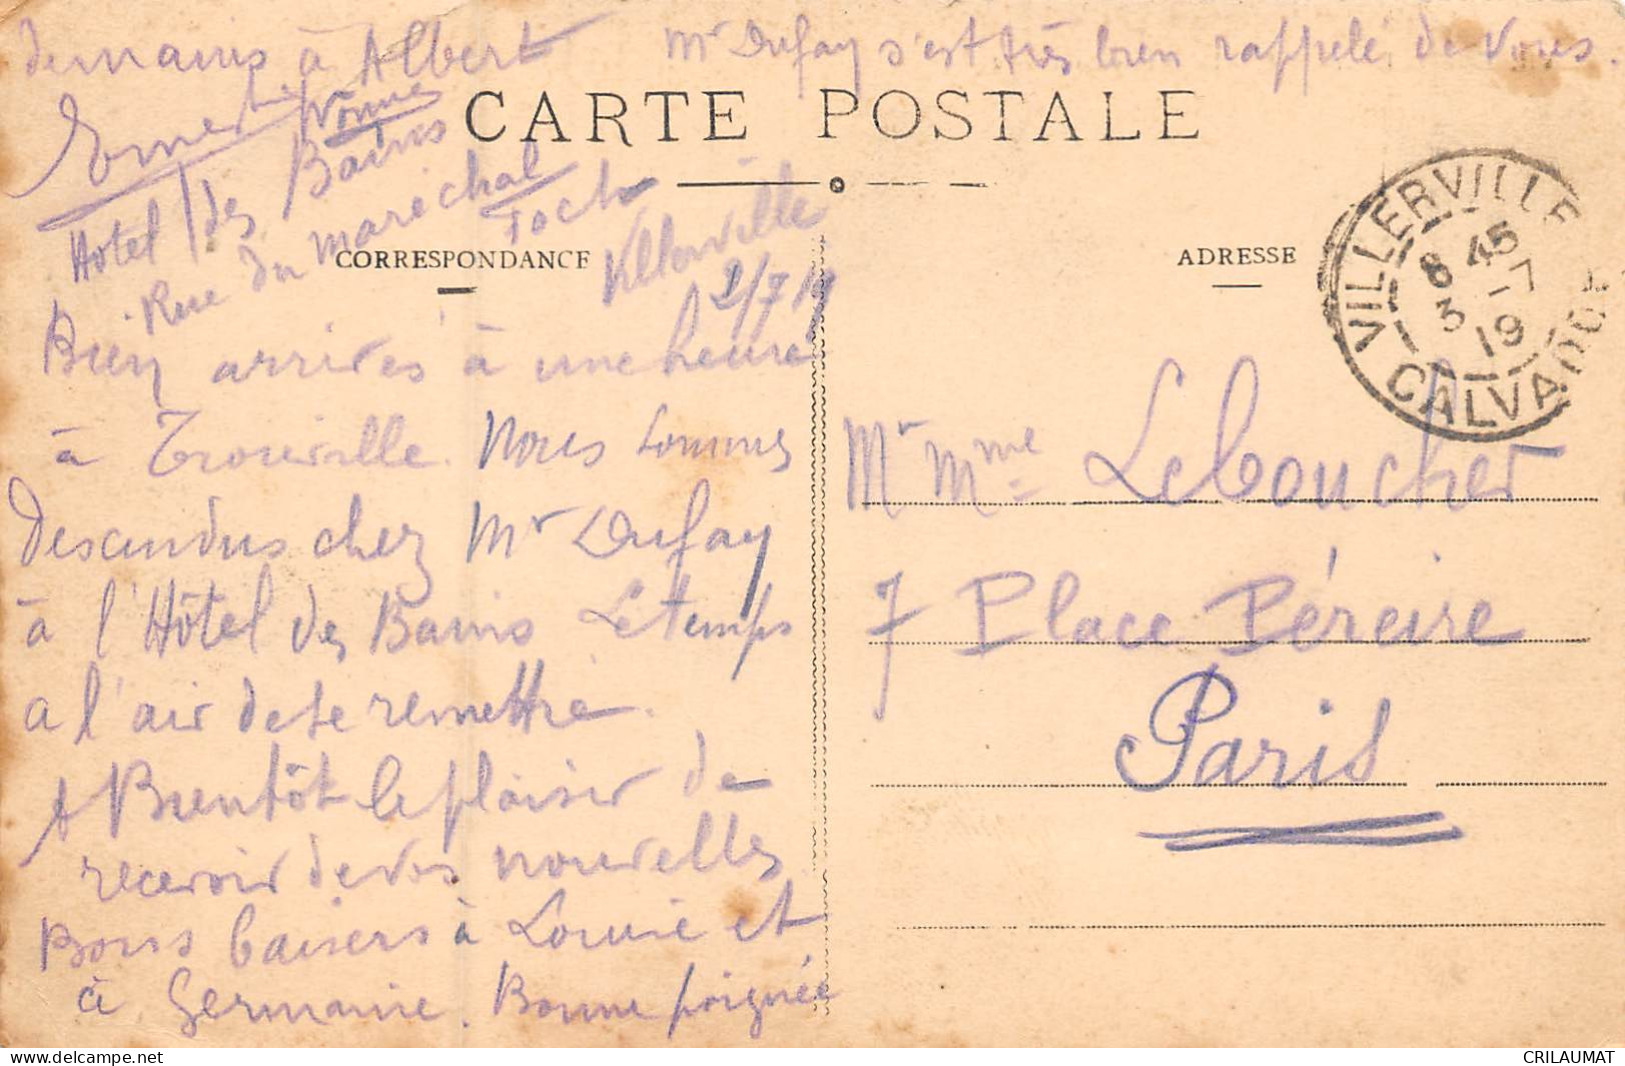 demains à Albert Mr Dufay s'est très bien rappelé de vous.
CARTE POSTALE
Ernest Yvonne
Hotel des Bains
Rue du Maréchal
Foch
CORRESPONDANCE
ADRESSE
Villerville
2/7/19
VILLERVILLE
8 45
3 -7
19
CALVADOS
Bien arrivés à une heure
à Trouville. Nous sommes
descendus chez Mr Dufay
à l'Hôtel des Bains Le temps
a l'air de se remettre.
A Bientôt le plaisir de
recevoir de vos nouvelles
Bons baisers à Louise et
à Germaine. Bonne poignée
Mr Mme Leboucher
7 Place Péreire
Paris
CRILAUMAT